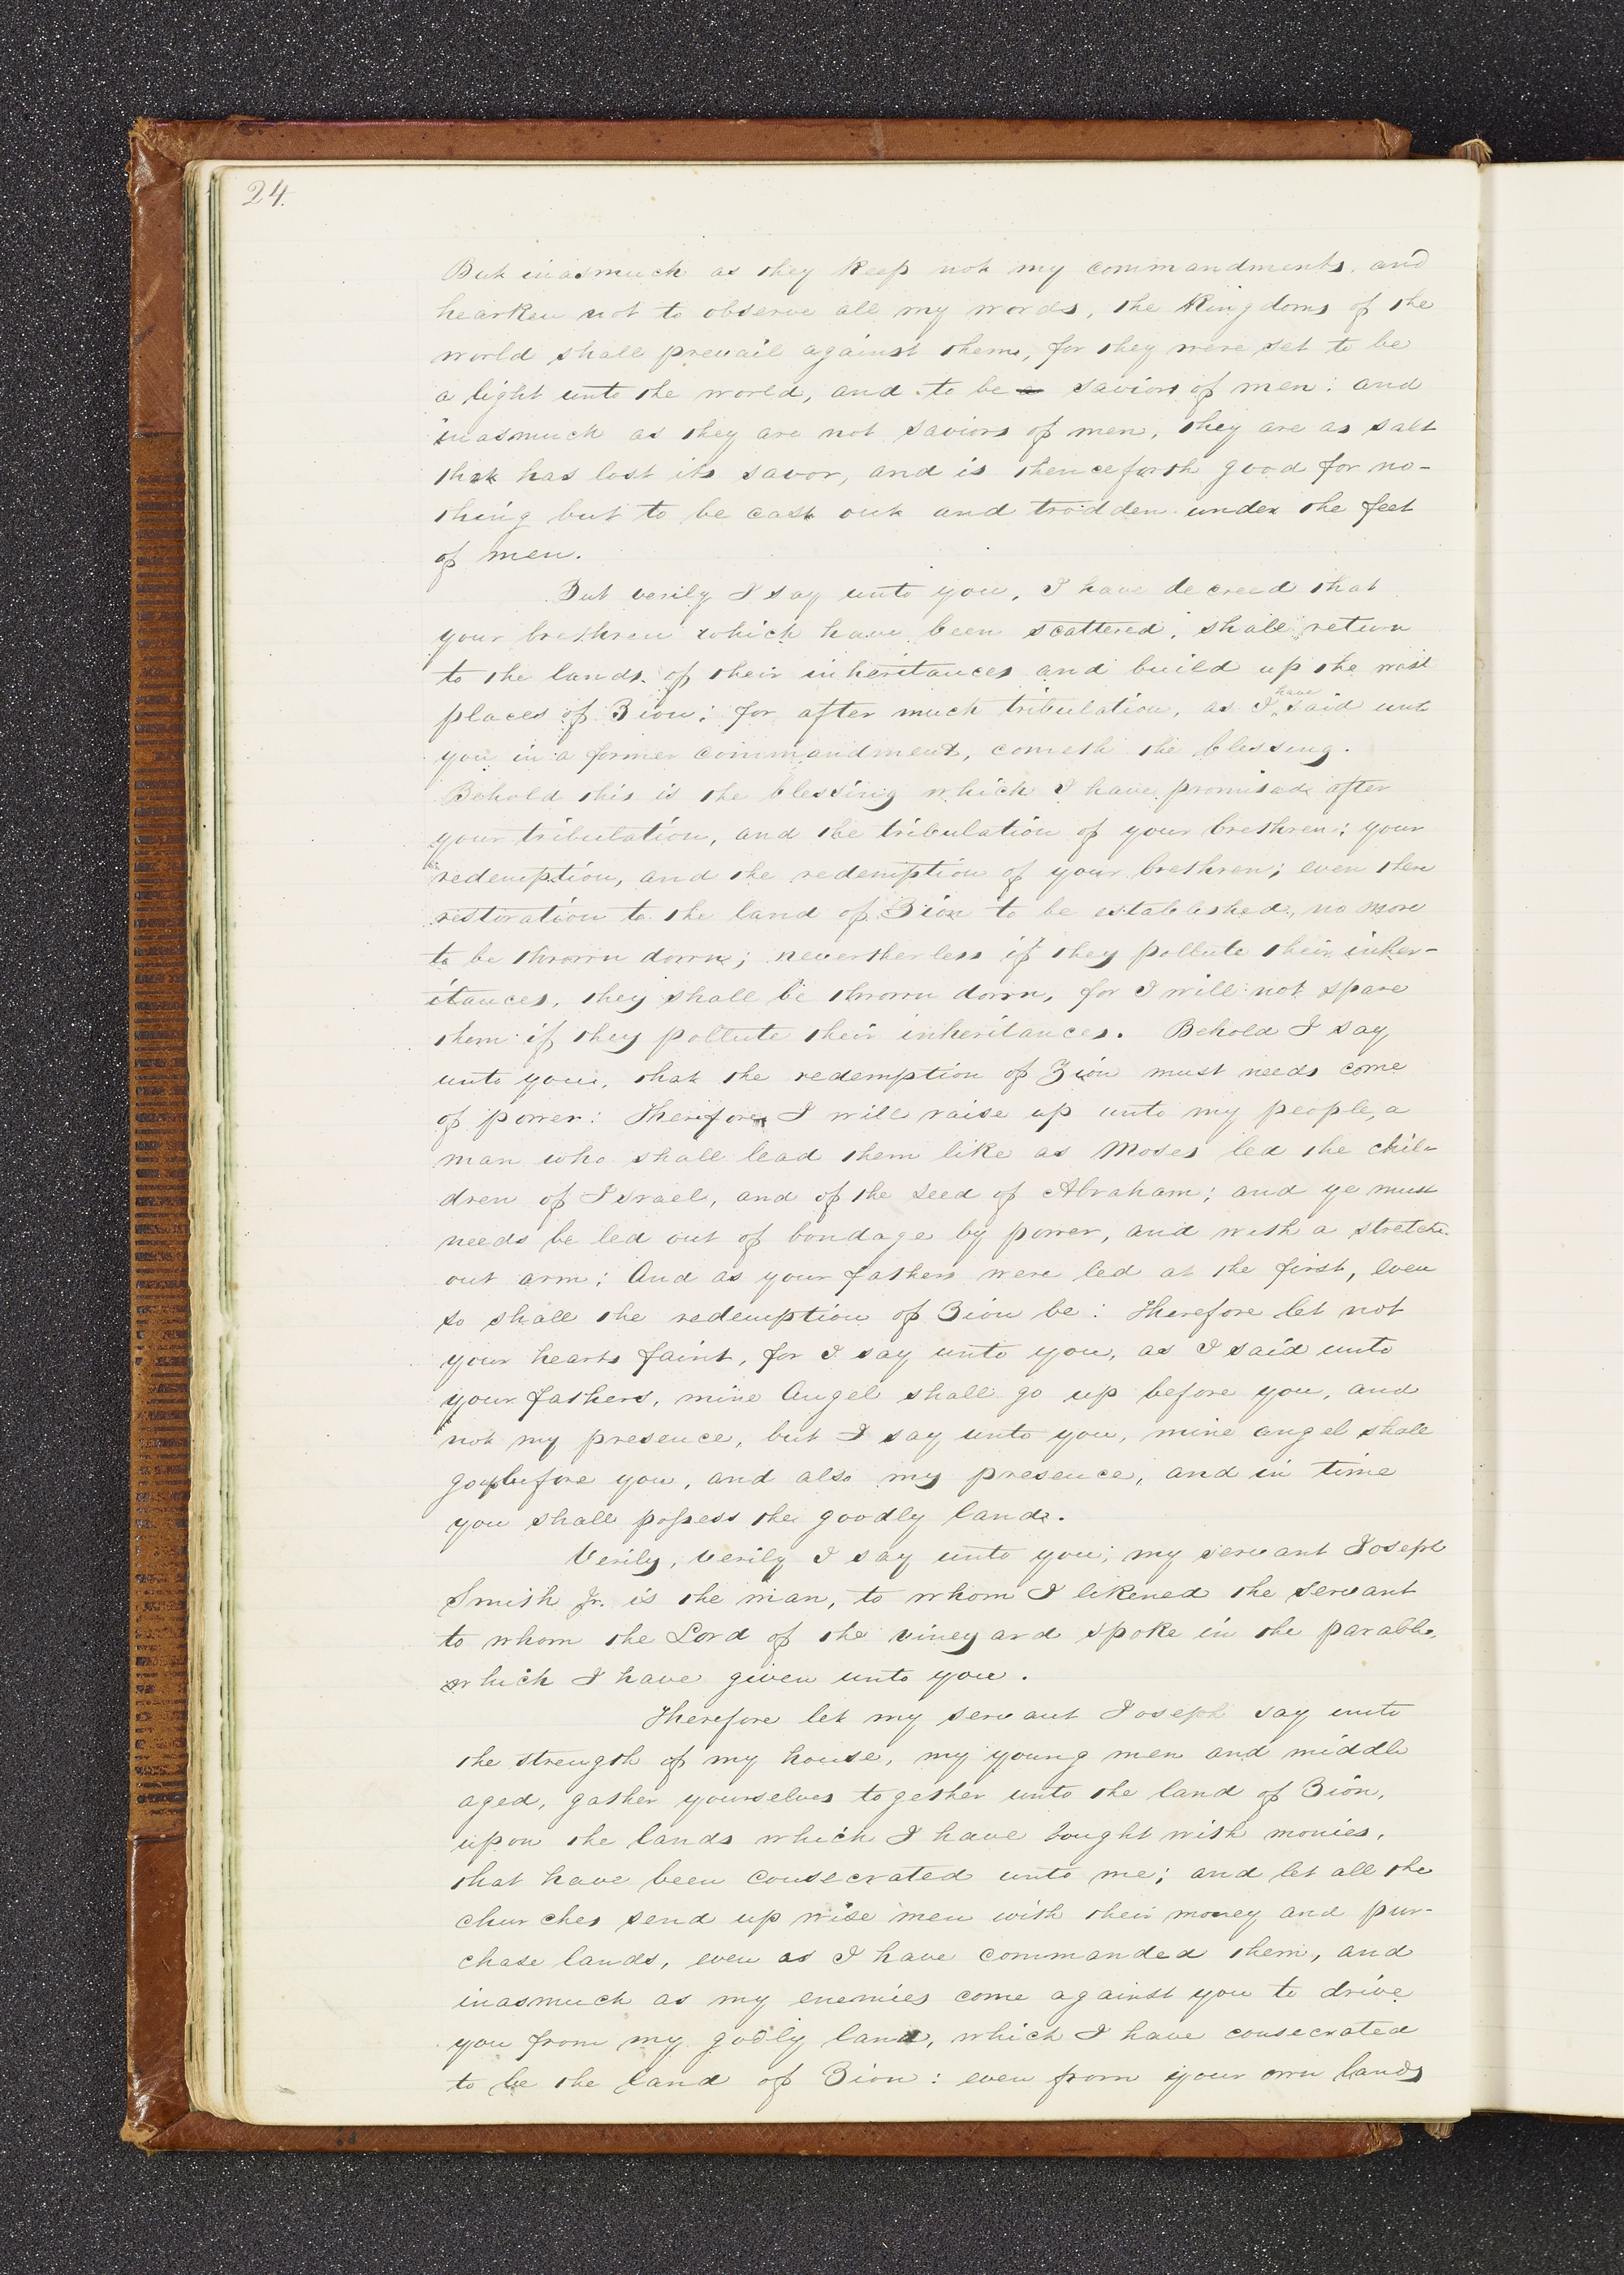 24.
But inasmuch as they keep not my commandments, and
hearken not to observe all my words, the Kingdoms of the
world shall prevail against them, for they were set to be
a light unto the world, and to be a saviors of men: and
inasmuch as they are not saviors of men, they are as salt
that has lost its savor, and is thenceforth good for no-
thing but to be cast out and trodden under the feet
of men.
But verily I say unto you, I have decreed that
your brethren which have been scattered, shall return
to the lands of their inheritances and build up the wast
places of Zion; for after much tribulation, as I have said unto
you in a former commandment, cometh the blessing.
Behold this is the blessing which I have promised after
your tribulation, and the tribulation of your brethren; your
redemption, and the redemption of your brethren; even their
restoration to the land of Zion to be established, no more
to be thrown down; nevertherless if they pollute their inher-
itances, they shall be thrown down, for I will not spare
them if they pollute their inheritances. Behold I say
unto you, that the redemption of Zion must needs come
of power: Therefore I will raise up unto my people, a
man who shall lead them like as Moses led the chil-
dren of Israel, and of the seed of Abraham; and ye must
needs be led out of bondage by power, and with a stretched
out arm; And as your fathers were led at the first, even
so shall the redemption of Zion be: Therefore let not
your hearts faint, for I say unto you, as I said unto
your fathers, mine Angel shall go up before you, and
not my presence, but I say unto you, mine angel shall
go up before you, and also my presence, and in time
you shall possess the goodly land.
Verily, verily I say unto you, my servant Joseph
Smith Jr. is the man, to whom I likened the servant
to whom the Lord of the vineyard spoke in the parable,
which I have given unto you.
Therefore let my servant Joseph say unto
the strength of my house, my young men and middle
aged, gather yourselves together unto the land of Zion,
upon the lands which I have bought with monies,
that have been consecrated unto me; and let all the
churches send up wise men with their money and pur-
chase lands, even as I have commanded them, and
inasmuch as my enemies come against you to drive
you from my godly land, which I have consecrated
to be the land of Zion: even from your own lands